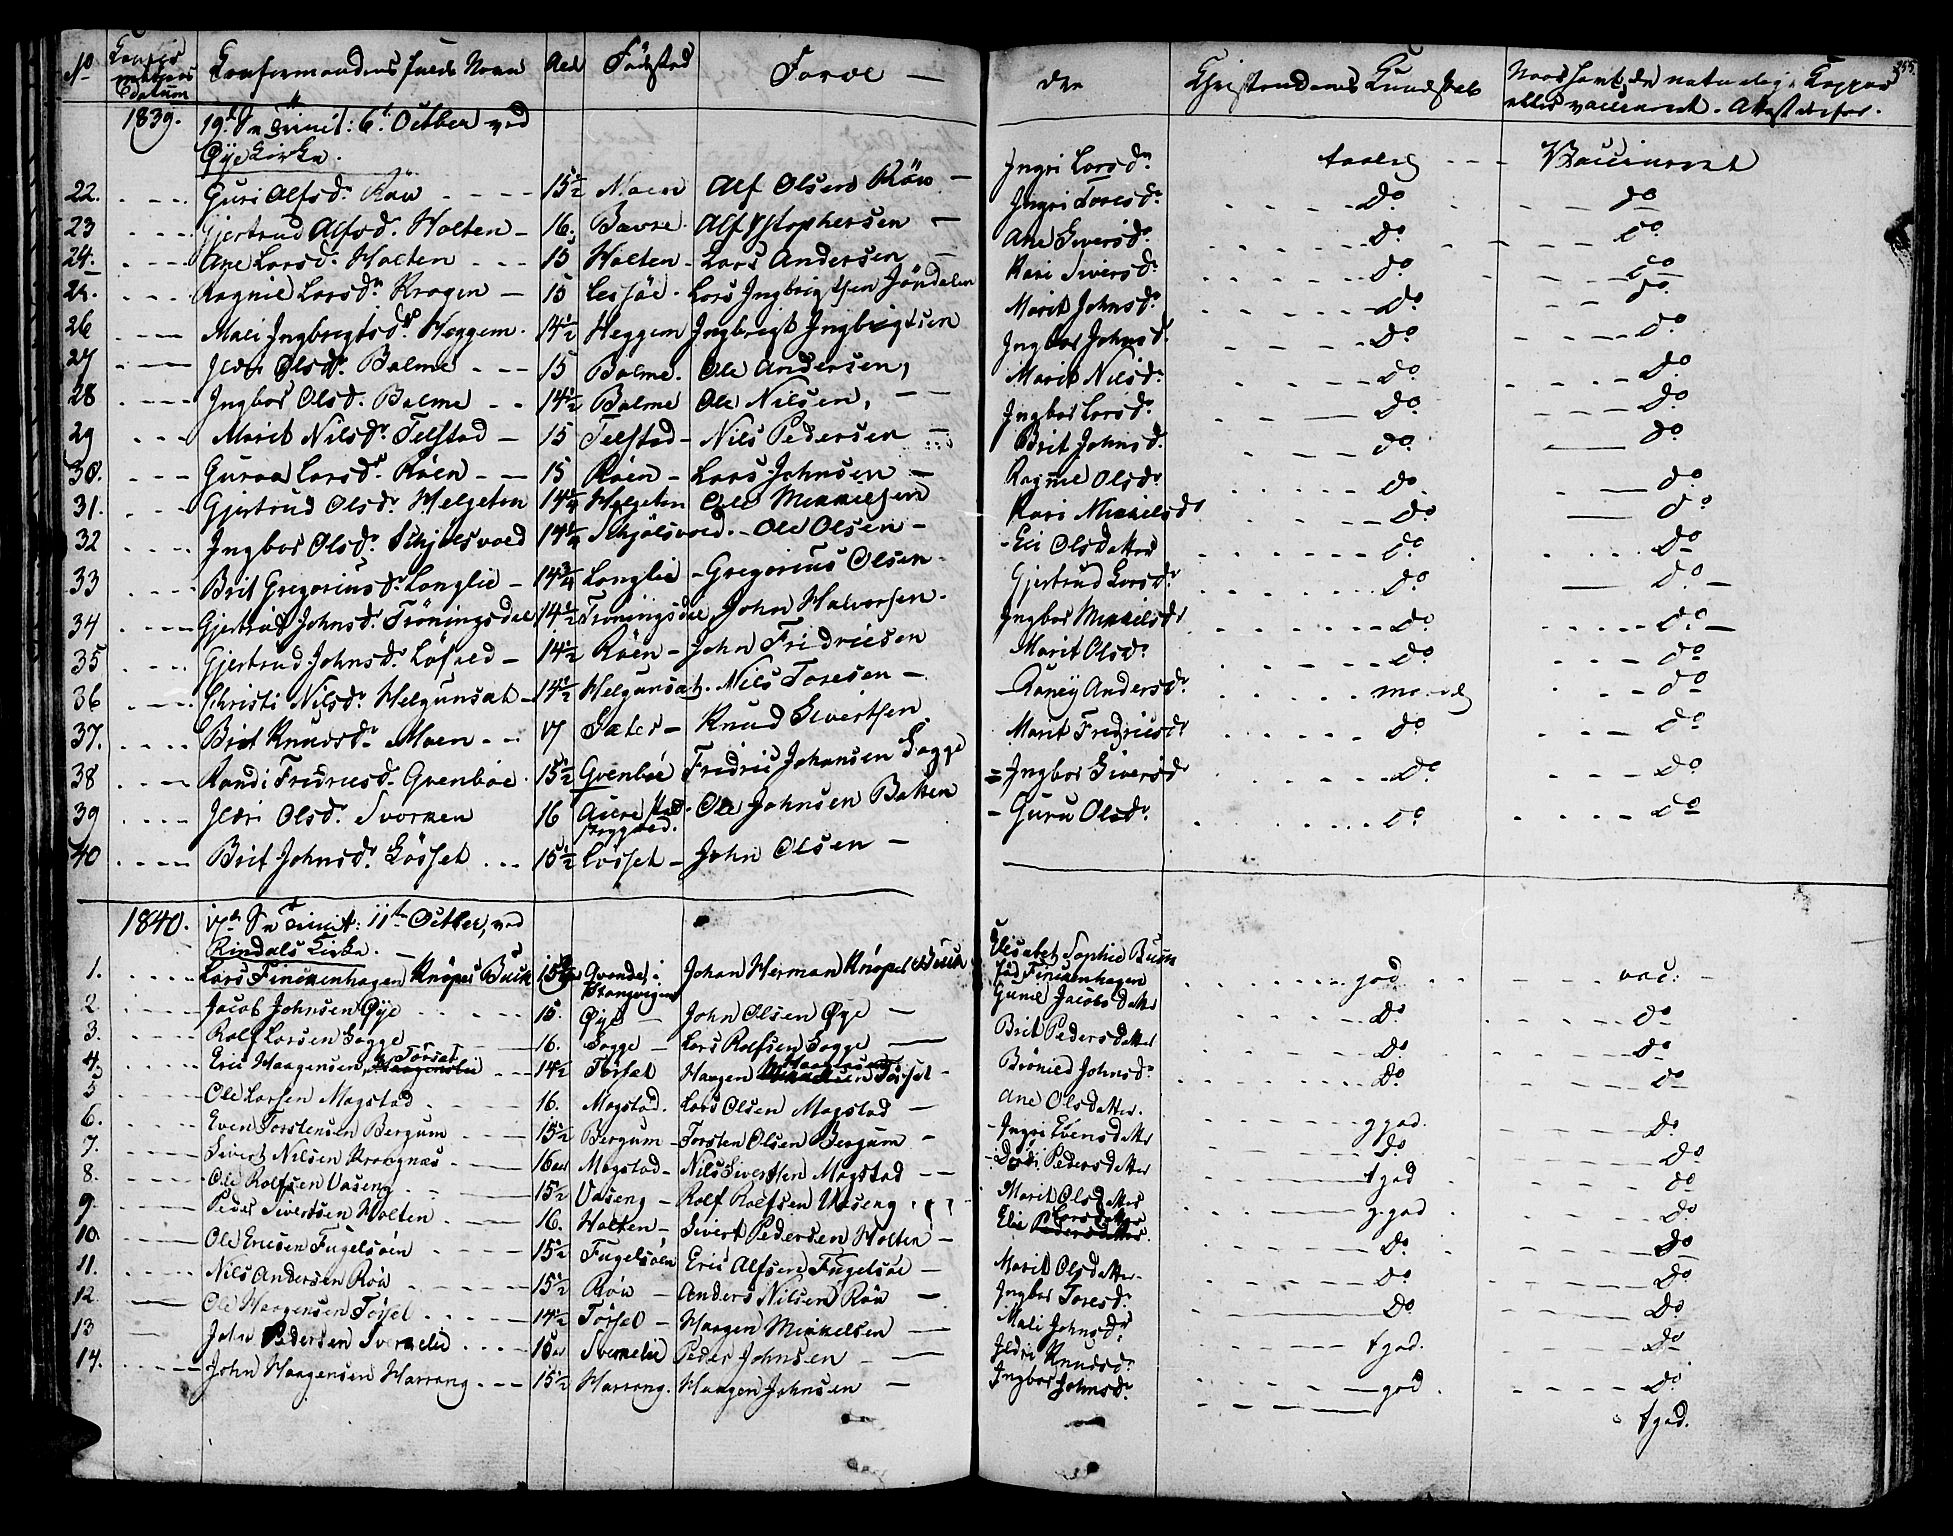 No Confirmations Datum Confirmandens fulde Navn Alder Fødested Foræl- dre Christendoms Kundskab Naar havt de naturlige Kopper 255.
eller vaccineret. Attest derfor.
1839. 19de S. n. Trinit: 6te Octber ved
Øye Kirke.
22. Guri Alfsdr Röv 15½ Moen Alf Olsen Röv Ingri Larsdr taalig Vaccineret
23 Gjertrud Alfsd. Holten 16. Bævre Alf Christophersen Ingri Toresdr do do
24. Ane Larsd. Holten 15 Holten Lars Andersen Ane Siversdr do do
25. Ragnil Larsdr Krogen 15 Lesjöe Lars Ingbrigtsen Jöndalen Kari Siversdr do do
26 Mali Ingbrigtsdr Heggem 14½ Heggem Ingbrigt Ingbrigtsen Marit Johnsdr do do
27 Ildri Olsdr Bolme 15 Bolme. Ole Andersen, Ingbor Johnsd. do do
28 Ingbor Olsd. Bolme 14½ Bolme Ole Nilsen, Marit Nilsdr do do
29 Marit Nilsdr Telstad 15 Telstad Nils Pedersen Ingbor Larsdr do do
30. Guroe Larsdr Röen 15 Röen Lars Johnsen Brit Johnsd. do do
31. Gjertrud Olsdr Helgeten 14¼ Helgeten Ole Mikkelsen Ragnil Olsdr do do
32 Ingbor Olsdr Schjölsvold 14¼ Schjölsvold. Ole Olsen Kari Mikkelsdr do do
33 Brit Gregoriusdr Langlie 14¾ Langlie Gregorius Olsen Eli Olsdatter do do
34 Gjertrud Johnsdr Tröningsdal 14½ Tröningsdal John Halvorsen Gjertrud Larsdr do do
35 Gjertrud Johnsdr Löfald 14½ Röen John Fridricsen Ingbor Mikkelsdr do do
36 Christi Nilsdr Helgunsat 14½ Helgunsat Nils Toresen Marit Olsdr do do
37. Brit Knudsdr Moen 17 Sæter Knud Sivertsen Roney Andersdr maadelig do
38 Randi Fredricsdr Grenböe 15½ Grenböe Fredric Johansen Sogge Marit Fredricsdr do do
39 Ildri Olsd. Svorken 16 Aure Præstegjeld. Ole Johnsen Bakken Ingbor Siversdr do do
40 Brit Johnsdr Lösset 15½ Lösset John Olsen Guru Olsdr do do
1840. 17de S. n. Trinit: 11te Octber, ved
Rindals Kirke.
1. Lars Finckenhagen Knöpel Buck Johan Herman Knöpel Buck Elisabet Sophie Buck
fød Finckenhagen god vac:
2 Jacob Johnsen Øye 15. Øye John Olsen Øye Gunil Jacobsdatter do do
3. Rolf Larsen Sogge 16. Sogge Lars Rolfsen Sogge Brit Pedersdatter do do
4. Eric Haagensen Törsat 14½ Törset Haagen Törset Brönild Johnsdr do do
5 Ole Larsen Mogstad 16. Mogstad. Lars Olsen Mogstad Ane Olsdatter. ggod. do
6. Even Torstensen Bergum 15½ Bergum Torsten Olsen Bergum Ingri Evensdatter do do
7. Sivert Nilsen Krangnæs 16 aar Mogstad Nils Sivertsen Mogstad Dordi Pedersdatter tgod do
8. Ole Rolfsen Vaseng 15½ Vaseng Rolf Rolfsen Vaseng Marit Olsdatter g.god do
9. Peder Sivertsen Holten 16. Holten Sivert Pedersen Holten Eli Larsdatter Pedersdatter. do do
10. Ole Ericsen Fugelsöen 15½ Fugelsöen Eric Alfsen Fugelsöe Marit Olsdatter. do do
11. Nils Andersen Röv 15½ Röv Anders Nilsen Röv Ingbor Toresdr do do
12. Ole Haagensen Törset 14½ Törset Haagen Mikkelsen Mali Johnsdr tgod. do
13 John Pedersen Svernelie 15 aar Svernelie Peder Johnsen Ildri Knudsdr god do
14. John Haagensen Harrang 15½ Harrang. Haagen Johnsen Ingbor Johnsdr tgod.